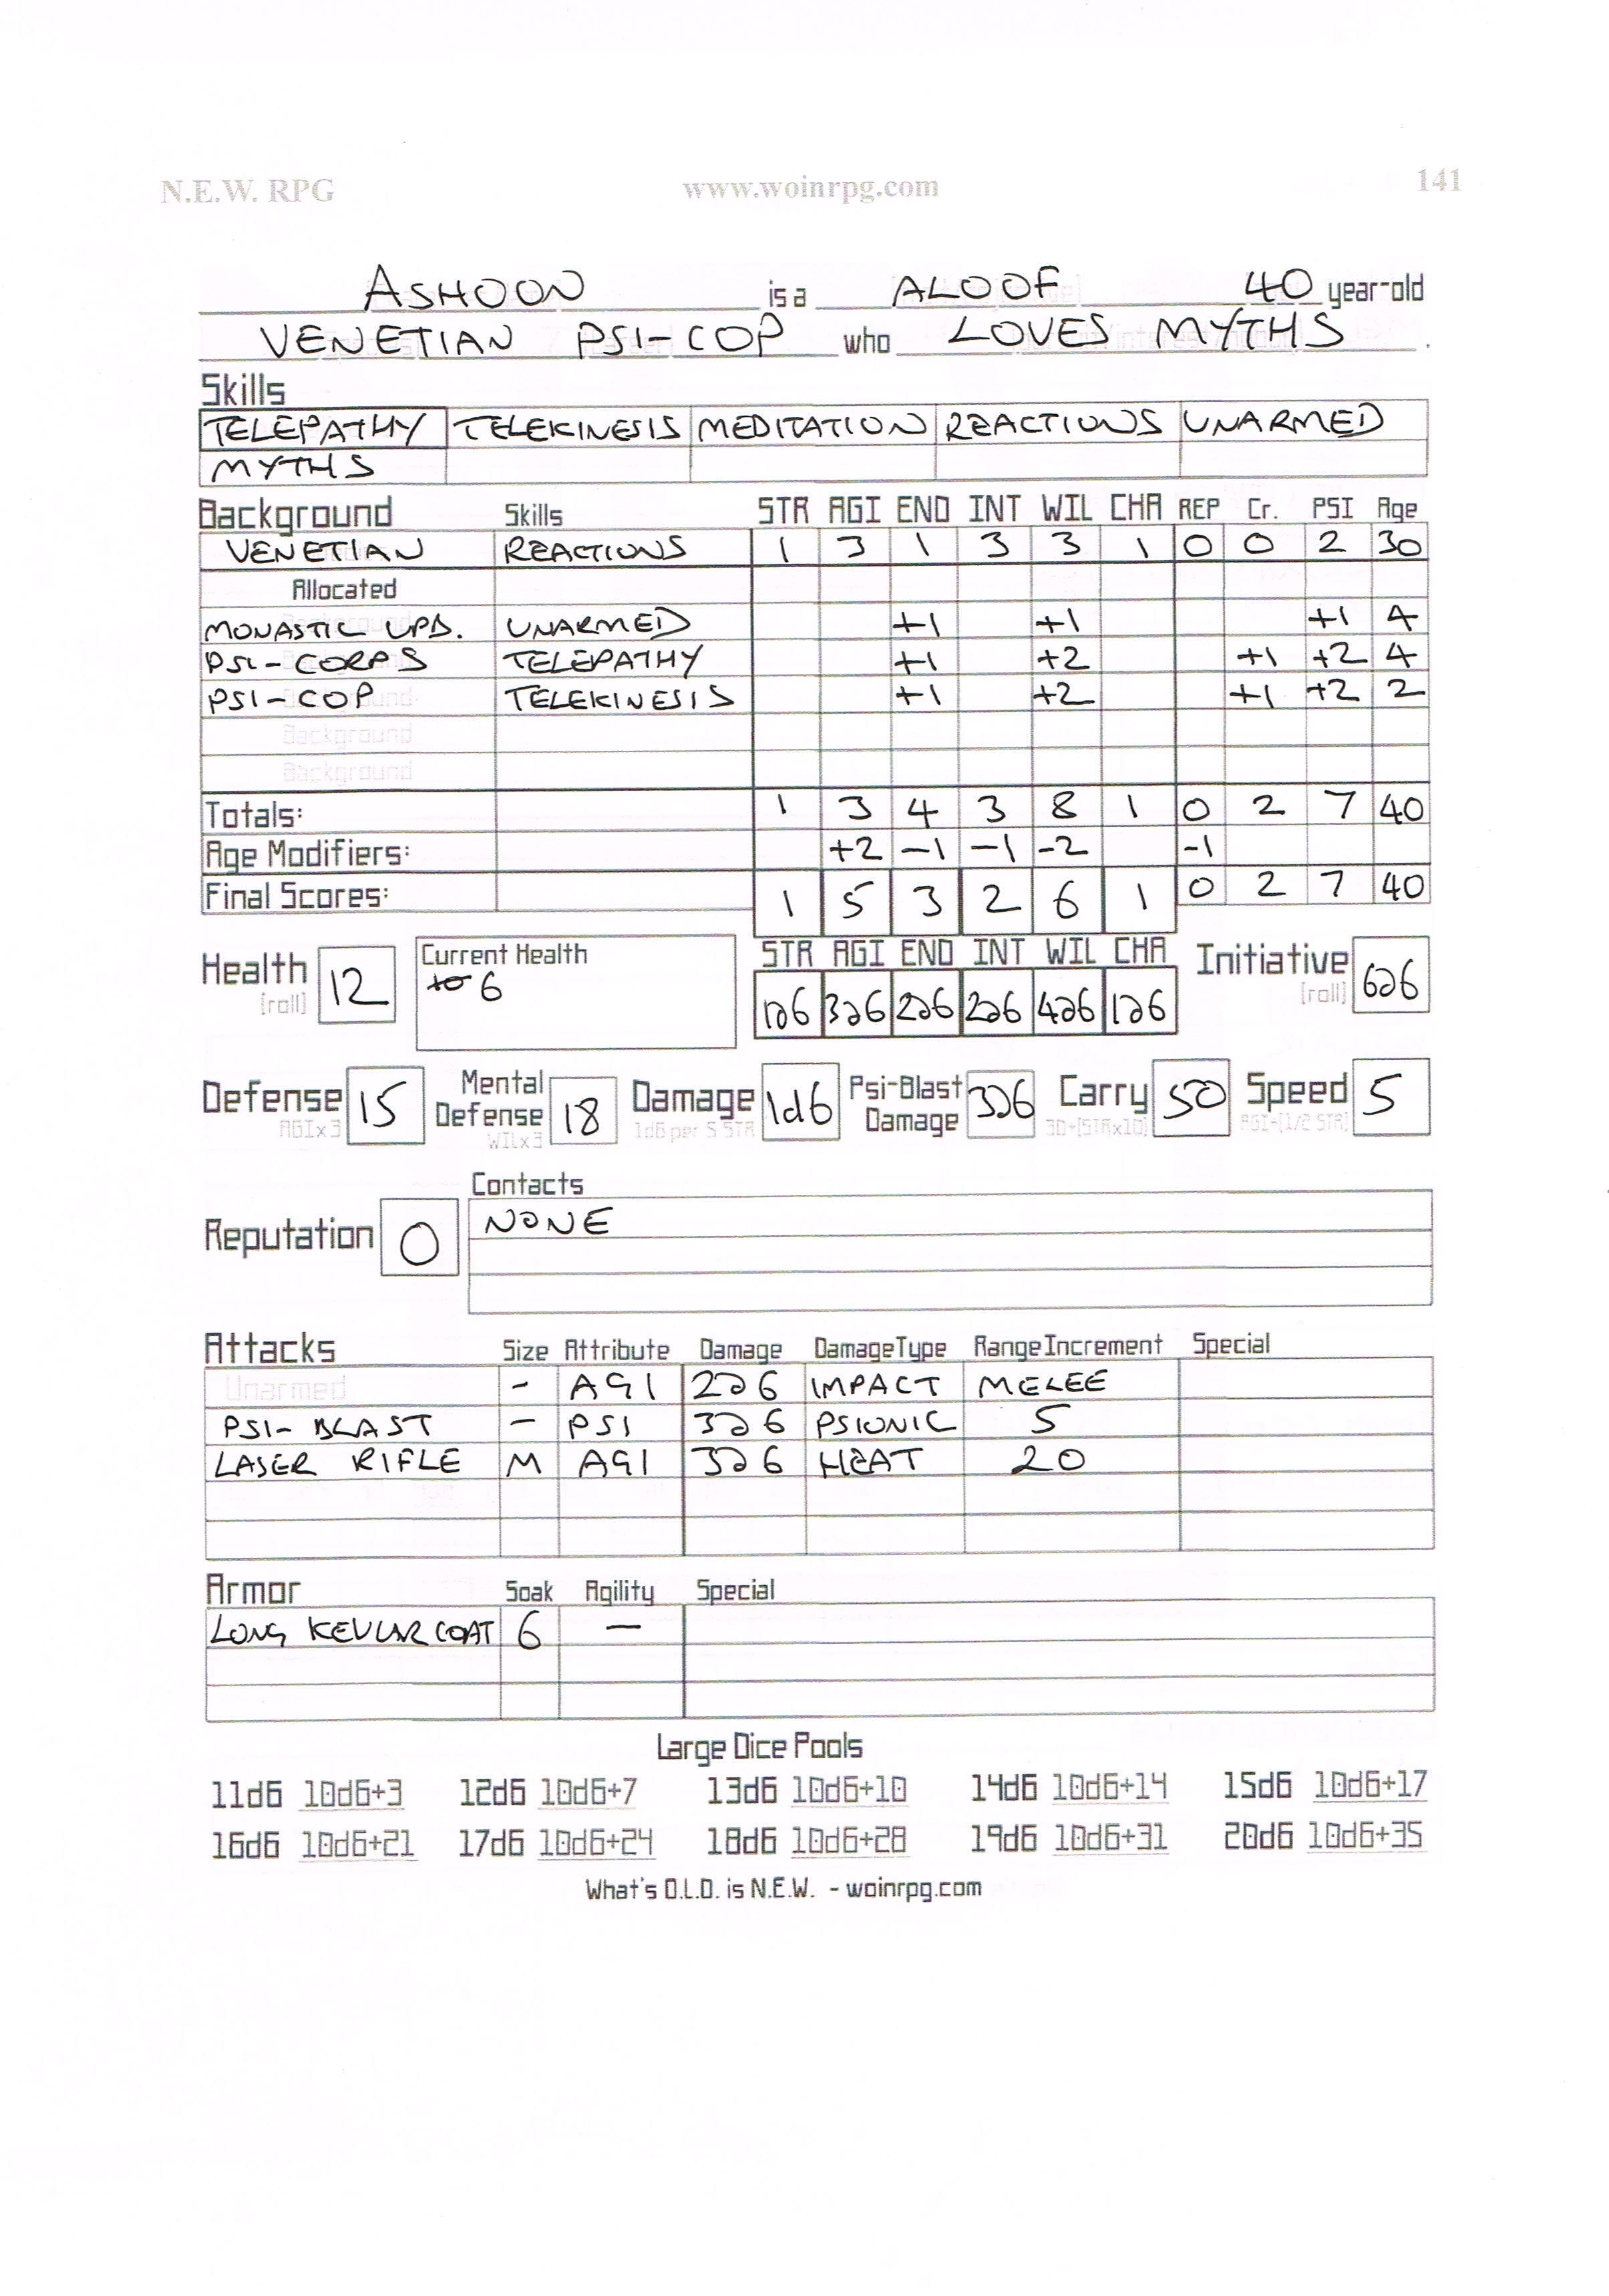 N.E.W. RPG www.woinrpg.com 141
ASHOON is a ALOOF 40 year-old
VENETIAN PSI-COP who LOVES MYTHS.
Skills
TELEPATHY TELEKINESIS MEDITATION REACTIONS UNARMED
MYTHS
Background Skills STR AGI END INT WIL CHA REP Cr. PSI Age
VENETIAN REACTIONS 1 3 1 3 3 1 0 0 2 30
Allocated
MONASTIC UPB. UNARMED +1 +1 +1 4
PSI-CORPS TELEPATHY +1 +2 +1 +2 4
PSI-COP TELEKINESIS +1 +2 +1 +2 2
Background
Background
Totals: 1 3 4 3 8 1 0 2 7 40
Age Modifiers: +2 -1 -1 -2 -1
Final Scores: 1 5 3 2 6 1 0 2 7 40
Health [roll] 12 Current Health 6 STR AGI END INT WIL CHA Initiative [roll] 6d6
1d6 3d6 2d6 2d6 4d6 1d6
Defense AGIx3 15 Mental Defense WILx3 18 Damage 1d6 per 5 STR 1d6 Psi-Blast Damage 3d6 Carry 30+[STRx10] 50 Speed AGI+[1/2 STR] 5
Contacts
Reputation 0 NONE
Attacks Size Attribute Damage DamageType RangeIncrement Special
Unarmed - AGI 2d6 IMPACT MELEE
PSI-BLAST - PSI 3d6 PSIONIC 5
LASER RIFLE M AGI 3d6 HEAT 20
Armor Soak Agility Special
LONG KEVLAR COAT 6 —
Large Dice Pools
11d6 10d6+3 12d6 10d6+7 13d6 10d6+10 14d6 10d6+14 15d6 10d6+17
16d6 10d6+21 17d6 10d6+24 18d6 10d6+28 19d6 10d6+31 20d6 10d6+35
What's O.L.D. is N.E.W. - woinrpg.com